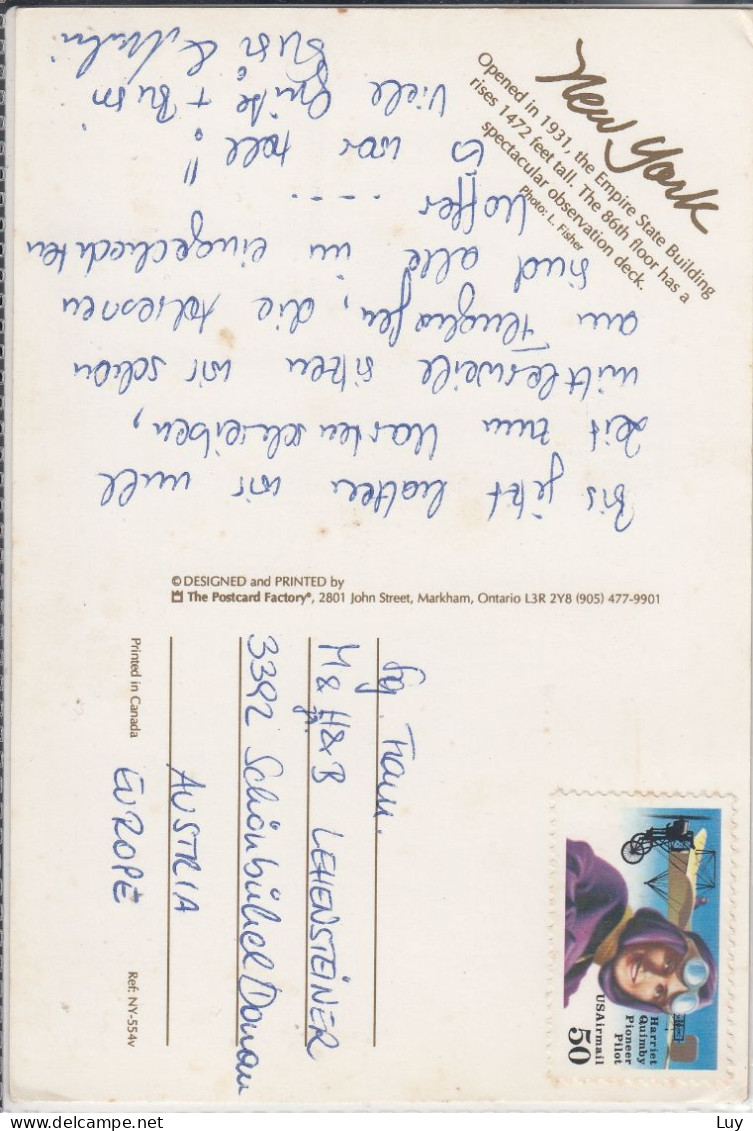 New York
Opened in 1931, the Empire State Building
rises 1472 feet tall. The 86th floor has a
spectacular observation deck.
Photo: L. Fisher
Bis jetzt hatten wir null
Zeit zum Kartenschreiben,
mittlerweile sitzen wir schon
am Flughafen, die
sind alle im eingecheckten
Koffer ----
Es war toll!!
Viele Grüße + Bussi
Susi &
© DESIGNED and PRINTED by
The Postcard Factory®, 2801 John Street, Markham, Ontario L3R 2Y8 (905) 477-9901
Printed in Canada
Ref: NY-554v
Fam.
M & H & B LEHENSTEINER
3392 Schönbühel/Donau
AUSTRIA
EUROPE
Harriet
Quimby
Pioneer
Pilot
USAirmail
50
Luy